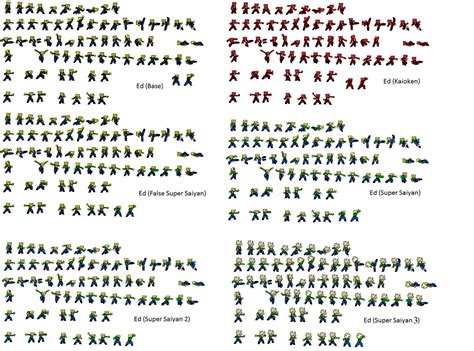 Ed (Base)
Ed (Kaioken)
Ed (False Super Saiyan)
Ed (Super Saiyan)
Ed (Super Saiyan 2)
Ed (Super Saiyan 3)